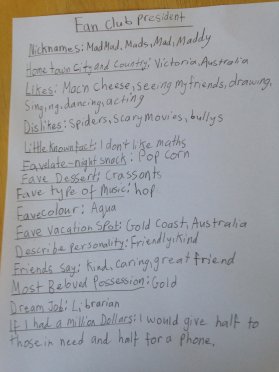 Fan Club president
Nicknames: MadMad, Mads, Mad, Maddy
Home town City and Country: Victoria, Australia
Likes: Mac'n Cheese, seeing my friends, drawing,
Singing, dancing, acting
Dislikes: Spiders, scary movies, bullys
Little known fact: I don't like maths
Fave late-night snack: Pop Corn
Fave Dessert: Crassonts
Fave type of Music: hop
Fave colour: Aqua
Fave vacation spot: Gold Coast, Australia
Describe personality: Friendly, Kind
Friends Say: Kind, caring, great friend
Most Beloved Possession: Gold
Dream Job: Librarian
If I had a million Dollars: I would give half to
those in need and half for a phone.